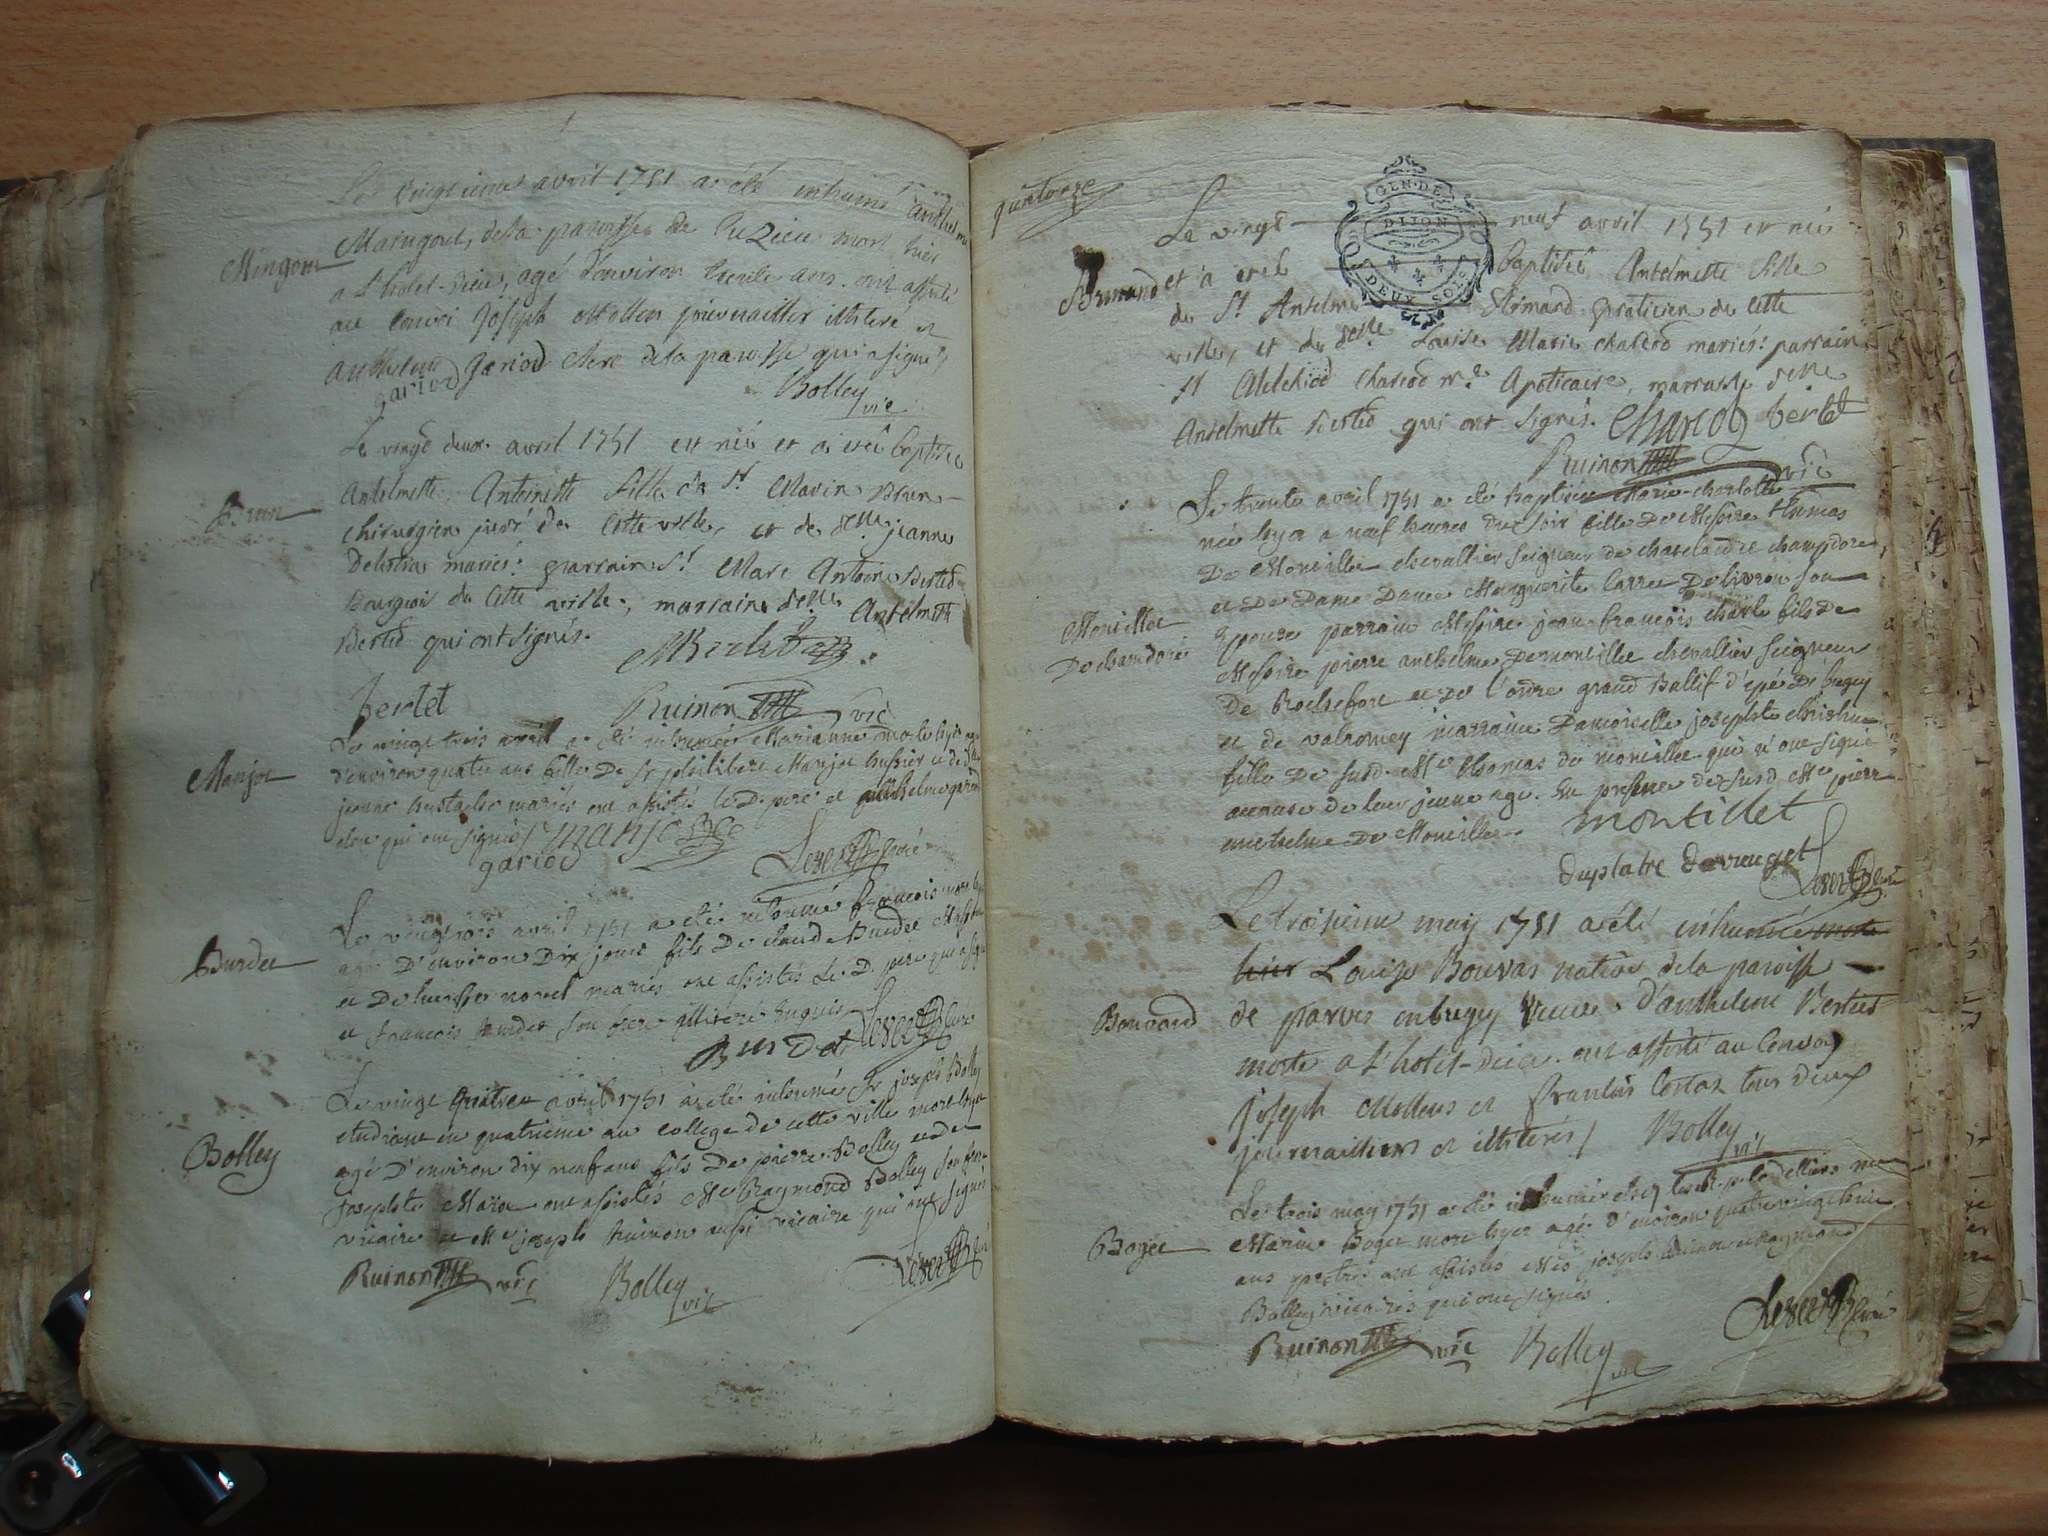 avril 1751 a été inhumé
Mingon
Maingout, de la paroisse de Puzieu mort hier
a l'hotel-dieu, agé d'environ trente ans. ont assisté
au convoi Joseph Mollion journaillier illiteré et
anthelme gariod clerc de la paroisse qui a signé
gariod
Bolley vic
Brun
Le vingt deux avril 1751 est née et a été baptisée
Antelmette Antoinette fille du Sr Marin Brun
chirurgien juré de cette ville, et de delle jeanne
mariés: parrain Sr Marc Antoine Bertet
Bourgeois de cette ville, marraine delle Antelmette
Bertet qui ont signés.
Bertet
Ruinon vic
Manjot
Le vingt trois avril a été inhumée Marianne morte hyer agée
d'environ quatre ans fille De Sr philibert Manjot huissier et de
jeanne mariés ont assistés le D. pere et anthelme gariod
clerc qui ont signés
gariod
Burdet
Le vingt trois avril 1751 a été inhumé francois mort
agé D'environ Dix jours fils De claude Burdet
et De mariés ont assistés Le D. pere qui a signé
et francois burdet son frere illiteré enquis
Burdet
Bolley
Le vingt quatre avril 1751 a été inhumé Sr joseph Bolley
etudiant en quatrieme au college de cette ville mort hyer
agé D'environ dix neuf ans fils De pierre Bolley et de
josephte ont assistés Me Raymond Bolley son frere
vicaire et Me joseph Ruinon aussi vicaire qui ont signés
Ruinon vic Bolley vic
quatorze
GEN. DE
DIJON
DEUX SOLS
Le vingt neuf avril 1751 est née
et a eté baptisée Antelmette fille
de Sr Anselme praticien de cette
ville, et de delle Louise Marie Charcod mariés: parrain
Sr Melchiod Charcod me Apoticaire, marraine delle
Antelmette Bertet qui ont signés. Charcod bertet
Ruinon vic
Montillet
De chamdore
Le trente avril 1751 a été baptisée Marie-charlotte
née hyer a neuf heures du soir fille De Messire thomas
De Montillet chevallier seigneur de chatelard et champdore
et De Dame Dame Marguerite Carrel De livron son
Epouse parrain Messire jean francois charle fils de
Messire pierre anthelme De montillet chevallier seigneur
De Rochefort et De l'ordre grand Ballif d'epée De bugey
et de valromey marraine Damoiselle josephte christine
fille De susd. Me thomas de montillet qui n'ont signé
acause de leur jeune age. En presence de susd Me pierre
anthelme De Montillet. montillet
duplatre
Bouvard
Le troisieme may 1751 a été inhumée morte
hier Louise Bouvar native de la paroisse
de parves en bugey veuve d'anthelme Bertet
morte a l'hotel-dieu. ont assisté au convoy
joseph Mollion et francois Costaz tous deux
journailliers et illiterés Bolley vic
Boget
Le trois may 1751 a été inhumé
Marin Boget mort hyer agé d'environ quatre vingt huit
ans ont assistés Mes joseph Ruinon et Raymond
Bolley vicaires qui ont signés.
Ruinon vic Bolley vic